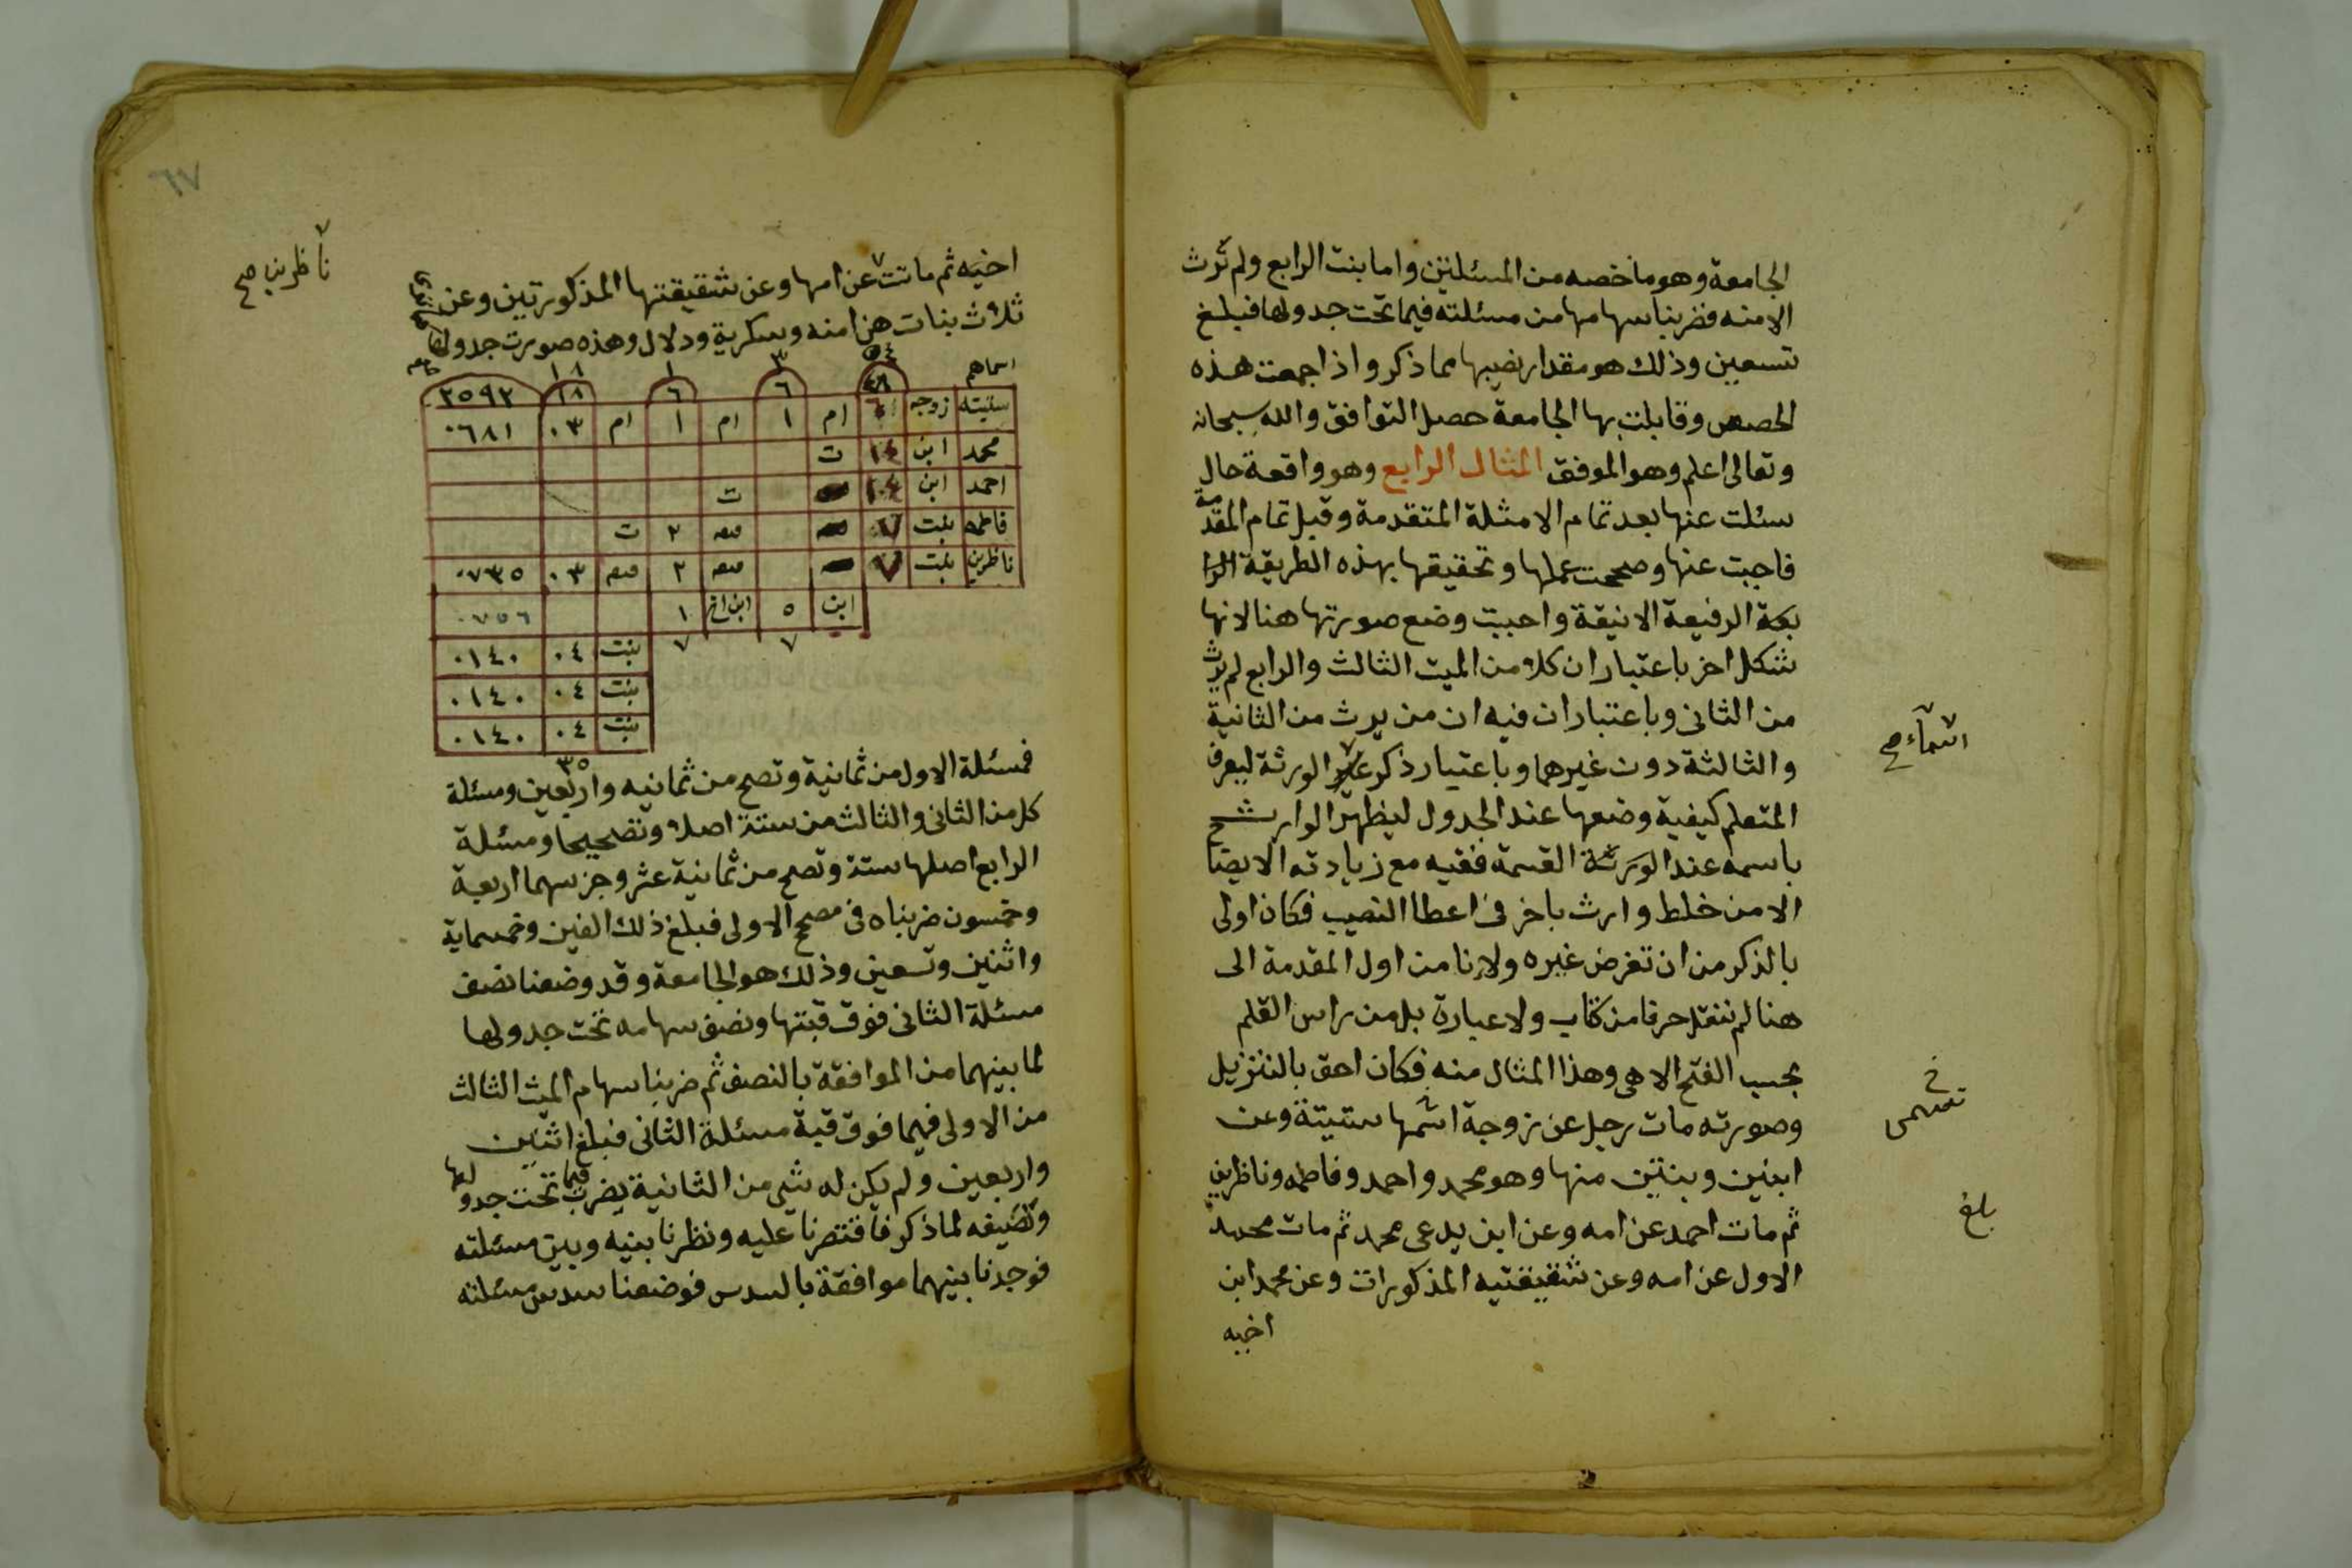 الجامعة وهو ما خصه من المسئلتين واما بنت الرابع ولم ترث
الا منه فضربنا سهامها من مسئلته فيما تحت جدولها فبلغ
تسعين وذلك هو مقدار نصيبها مما ذكر واذا جمعت هذه
الحصص وقابلت بها الجامعة حصل التوافق والله سبحانه
وتعالى اعلم وهو الموفق المثال الرابع وهو واقعة حال
سئلت عنها بعد تمام الامثلة المتقدمة وقبل تمام المقدمة
فاجبت عنها وصححت عملها وتحقيقها بهذه الطريقة الرا
بعة الرفيعة الانيقة واحببت وضع صورتها هنا لانها
شكل اخر باعتبار ان كلا من الميت الثالث والرابع لم يرث
من الثاني وباعتبار ان فيه ان من يرث من الثانية
والثالثة دون غيرهما وباعتبار ذكر الورثة ليعرف
اسماء صح
المتعلم كيفية وضعها عند الجدول ليظهر الوارث
باسمه عند القسمة ففيه مع زيادته الايضا
الامن خلط وارث باخر في اعطا النصيب فكان اولى
بالذكر من ان تفرض غيره ولاننا من اول المقدمة الى
هنا لم ننقل حرفا من كتاب ولا عبارة بل من راس القلم
بحسب الفتح الاهى وهذا المثال منه فكان احق بالتنزيل
وصورته مات رجل عن زوجة اسمها ستيتة وعن
خ
تسمى
ابنين وبنتين منها وهو محمد واحمد وفاطمه وناظرين
بلغ
ثم مات احمد عن امه وعن ابن يدعى محمد ثم مات محمد
الاول عن امه وعن شقيقتيه المذكورات وعن محمد ابن
اخيه
٦٧
اخيه ثم ماتت عن امها وعن شقيقتها المذكورتين وعن
ناظرين صح
ثلاث بنات هن امنه وسكرية ودلال وهذه صورت جدولها
اسماهم ٥٤ ٣ ١ ١٨
٤٨ ٦ ٦ ١٨ ٢٥٩٢
ستيته زوجه ٦ ام ١ ام ١ ام ٠٣ ٠٦٨١
محمد ابن ١٤ ت
احمد ابن ١٤ ت
فاطمه بنت ٧ ٢ ت
ناظرين بنت ٧ ٢ ٠٣ ٠٧٣٥
ابن ٥ ابن اخ ١ ٠٧٥٦
٧ ٧ بنت ٠٤ ٠١٤٠
بنت ٠٤ ٠١٤٠
بنت ٠٤ ٠١٤٠
٣٥
فمسئلة الاول من ثمانية وتصح من ثمانيه واربعين ومسئلة
كل من الثاني والثالث من ستة اصلا وتصحيحا ومسئلة
الرابع اصلها ستة وتصح من ثمانية عشر وجز سهما اربعة
وخمسون ضربناه في مصح الاولى فبلغ ذلك الفين وخمسماية
واثنين وتسعين وذلك هو الجامعة وقد وضعنا نصف
مسئلة الثاني فوق قبتها ونصف سهامه تحت جدولها
لما بينهما من الموافقة بالنصف ثم ضربنا سهام الميت الثالث
من الاولى فيما فوق قبة مسئلة الثاني فبلغ اثنين
واربعين ولم يكن له شي من الثانية يضرب فيما تحت جدولها
ونضيفه لما ذكر فاقتصرنا عليه ونظرنا بينه وبين مسئلته
فوجدنا بينهما موافقة بالسدس فوضعنا سدس مسئلته